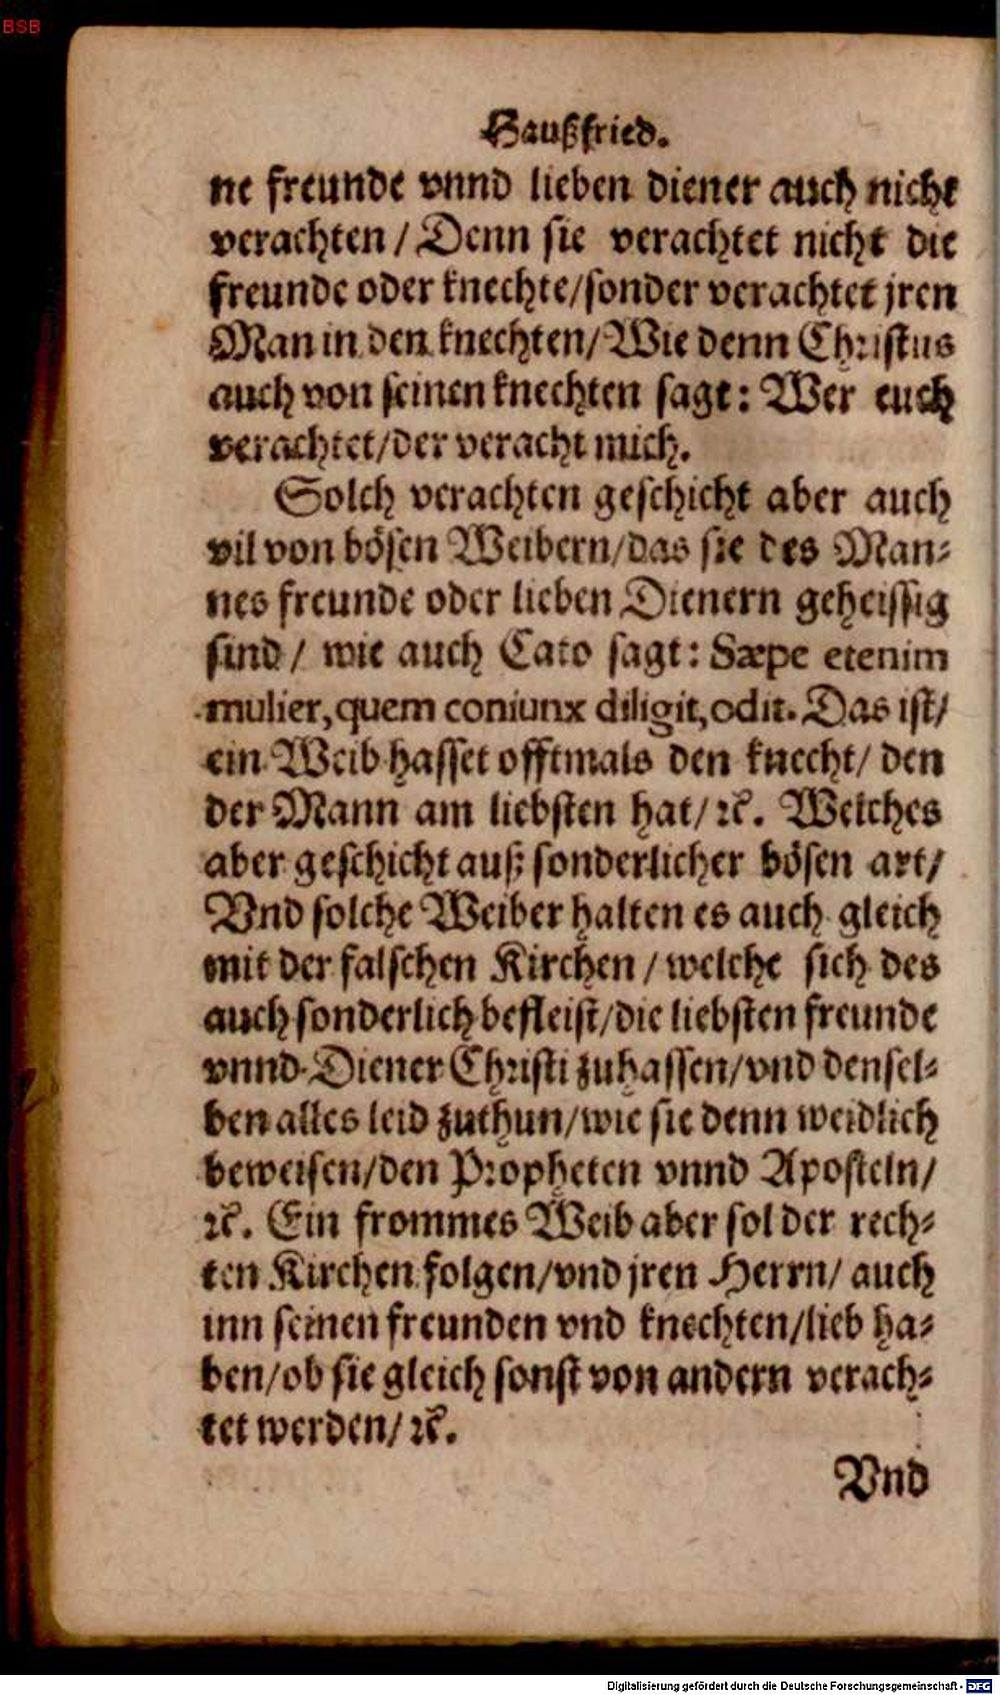 BSB
Haußfried.
ne freunde vnnd lieben diener auch nicht
verachten / Denn sie verachtet nicht die
freunde oder knechte/sonder verachtet jren
Man in den knechten/Wie denn Christus
auch von seinen knechten sagt: Wer euch
verachtet/der veracht mich.
Solch verachten geschicht aber auch
vil von bösen Weibern/das sie des Man-
nes freunde oder lieben Dienern geheissig
sind / wie auch Cato sagt: Sæpe etenim
mulier, quem coniunx diligit, odit. Das ist/
ein Weib hasset offtmals den knecht/ den
der Mann am liebsten hat/ ꝛc. Welches
aber geschicht auß sonderlicher bösen art/
Vnd solche Weiber halten es auch gleich
mit der falschen Kirchen / welche sich des
auch sonderlich befleist/die liebsten freunde
vnnd Diener Christi zuhassen/vnd densel-
ben alles leid zuthun/wie sie denn weidlich
beweisen/den Propheten vnnd Aposteln/
ꝛc. Ein frommes Weib aber sol der rech-
ten Kirchen folgen/vnd jren Herrn/ auch
inn seinen freunden vnd knechten/lieb ha-
ben/ob sie gleich sonst von andern verach-
tet werden/ ꝛc.
Vnd
Digitalisierung gefördert durch die Deutsche Forschungsgemeinschaft - DFG